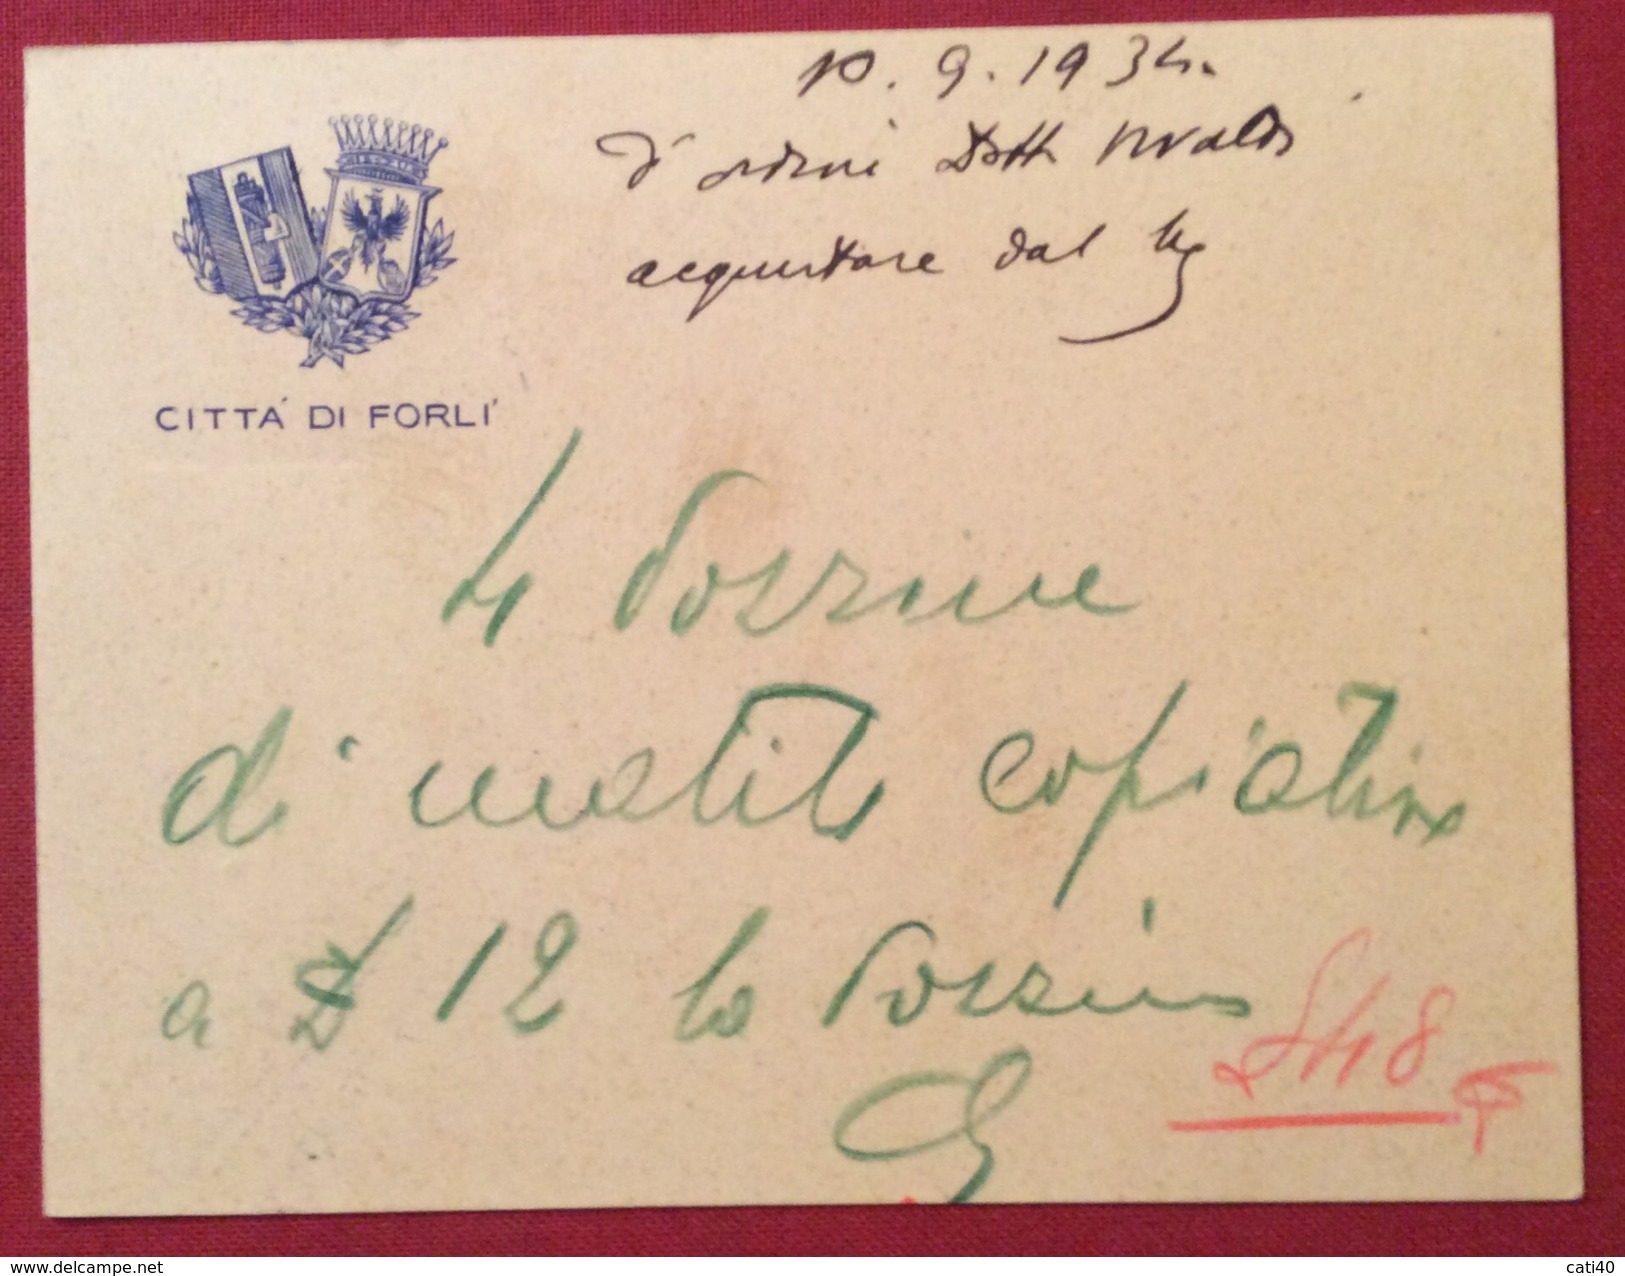 10.9.1934.
d'ordine Dott. Rivalta
acquistare dal
CITTÀ DI FORLI'
4 Dozzine
di matite copiative
a £ 12 la Dozzina
£ 48
delcampe.net
cati40